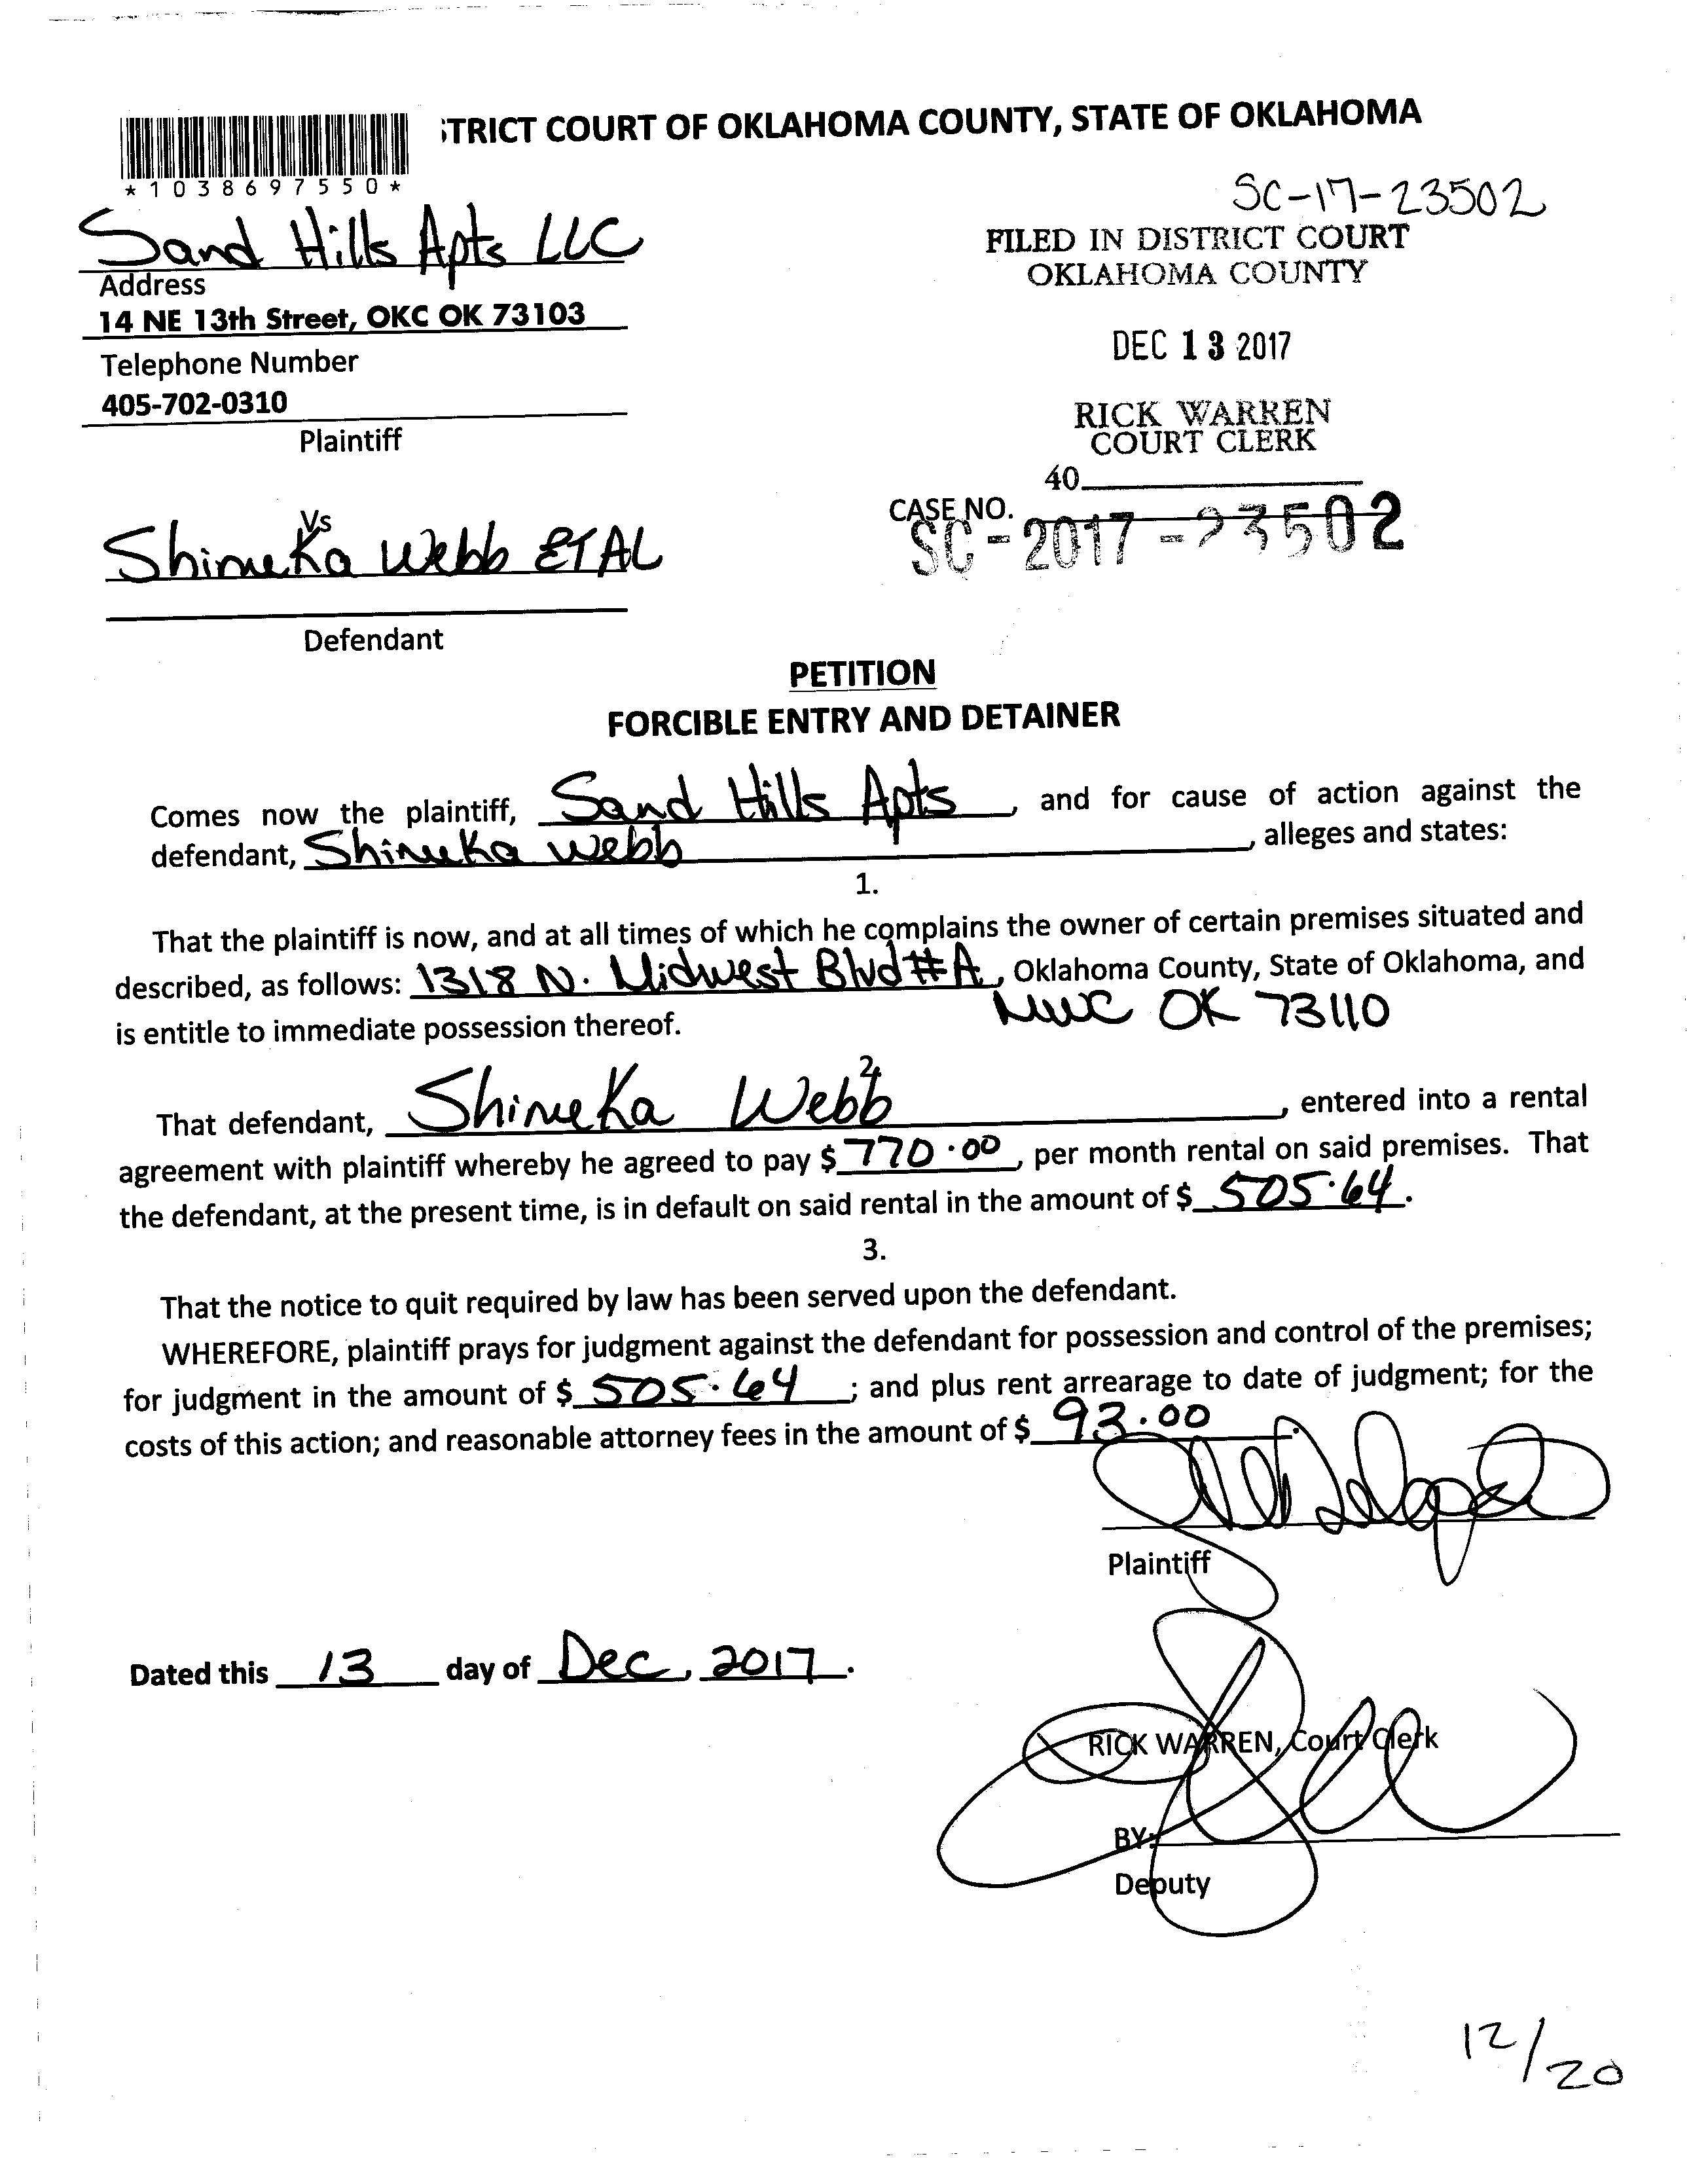 STRICT COURT OF OKLAHOMA COUNTY, STATE OF OKLAHOMA
*1038697550*
SC-17-23502
Sand Hills Apts LLC
FILED IN DISTRICT COURT
OKLAHOMA COUNTY
Address
14 NE 13th Street, OKC OK 73103
DEC 13 2017
Telephone Number
405-702-0310
RICK WARREN
COURT CLERK
Plaintiff
40
CASE NO.
SC-2017-23502
Vs
Shimeka Webb ETAL
Defendant
PETITION
FORCIBLE ENTRY AND DETAINER
Comes now the plaintiff, Sand Hills Apts, and for cause of action against the
defendant, Shimeka Webb, alleges and states:
1.
That the plaintiff is now, and at all times of which he complains the owner of certain premises situated and
described, as follows: 1318 N. Midwest Blvd #A, Oklahoma County, State of Oklahoma, and
MWC OK 73110
is entitle to immediate possession thereof.
2.
That defendant, Shimeka Webb, entered into a rental
agreement with plaintiff whereby he agreed to pay $ 770.00, per month rental on said premises. That
the defendant, at the present time, is in default on said rental in the amount of $ 505.64.
3.
That the notice to quit required by law has been served upon the defendant.
WHEREFORE, plaintiff prays for judgment against the defendant for possession and control of the premises;
for judgment in the amount of $ 505.64; and plus rent arrearage to date of judgment; for the
costs of this action; and reasonable attorney fees in the amount of $ 93.00.
Plaintiff
Dated this 13 day of Dec, 2017.
RICK WARREN, Court Clerk
BY:
Deputy
12/20